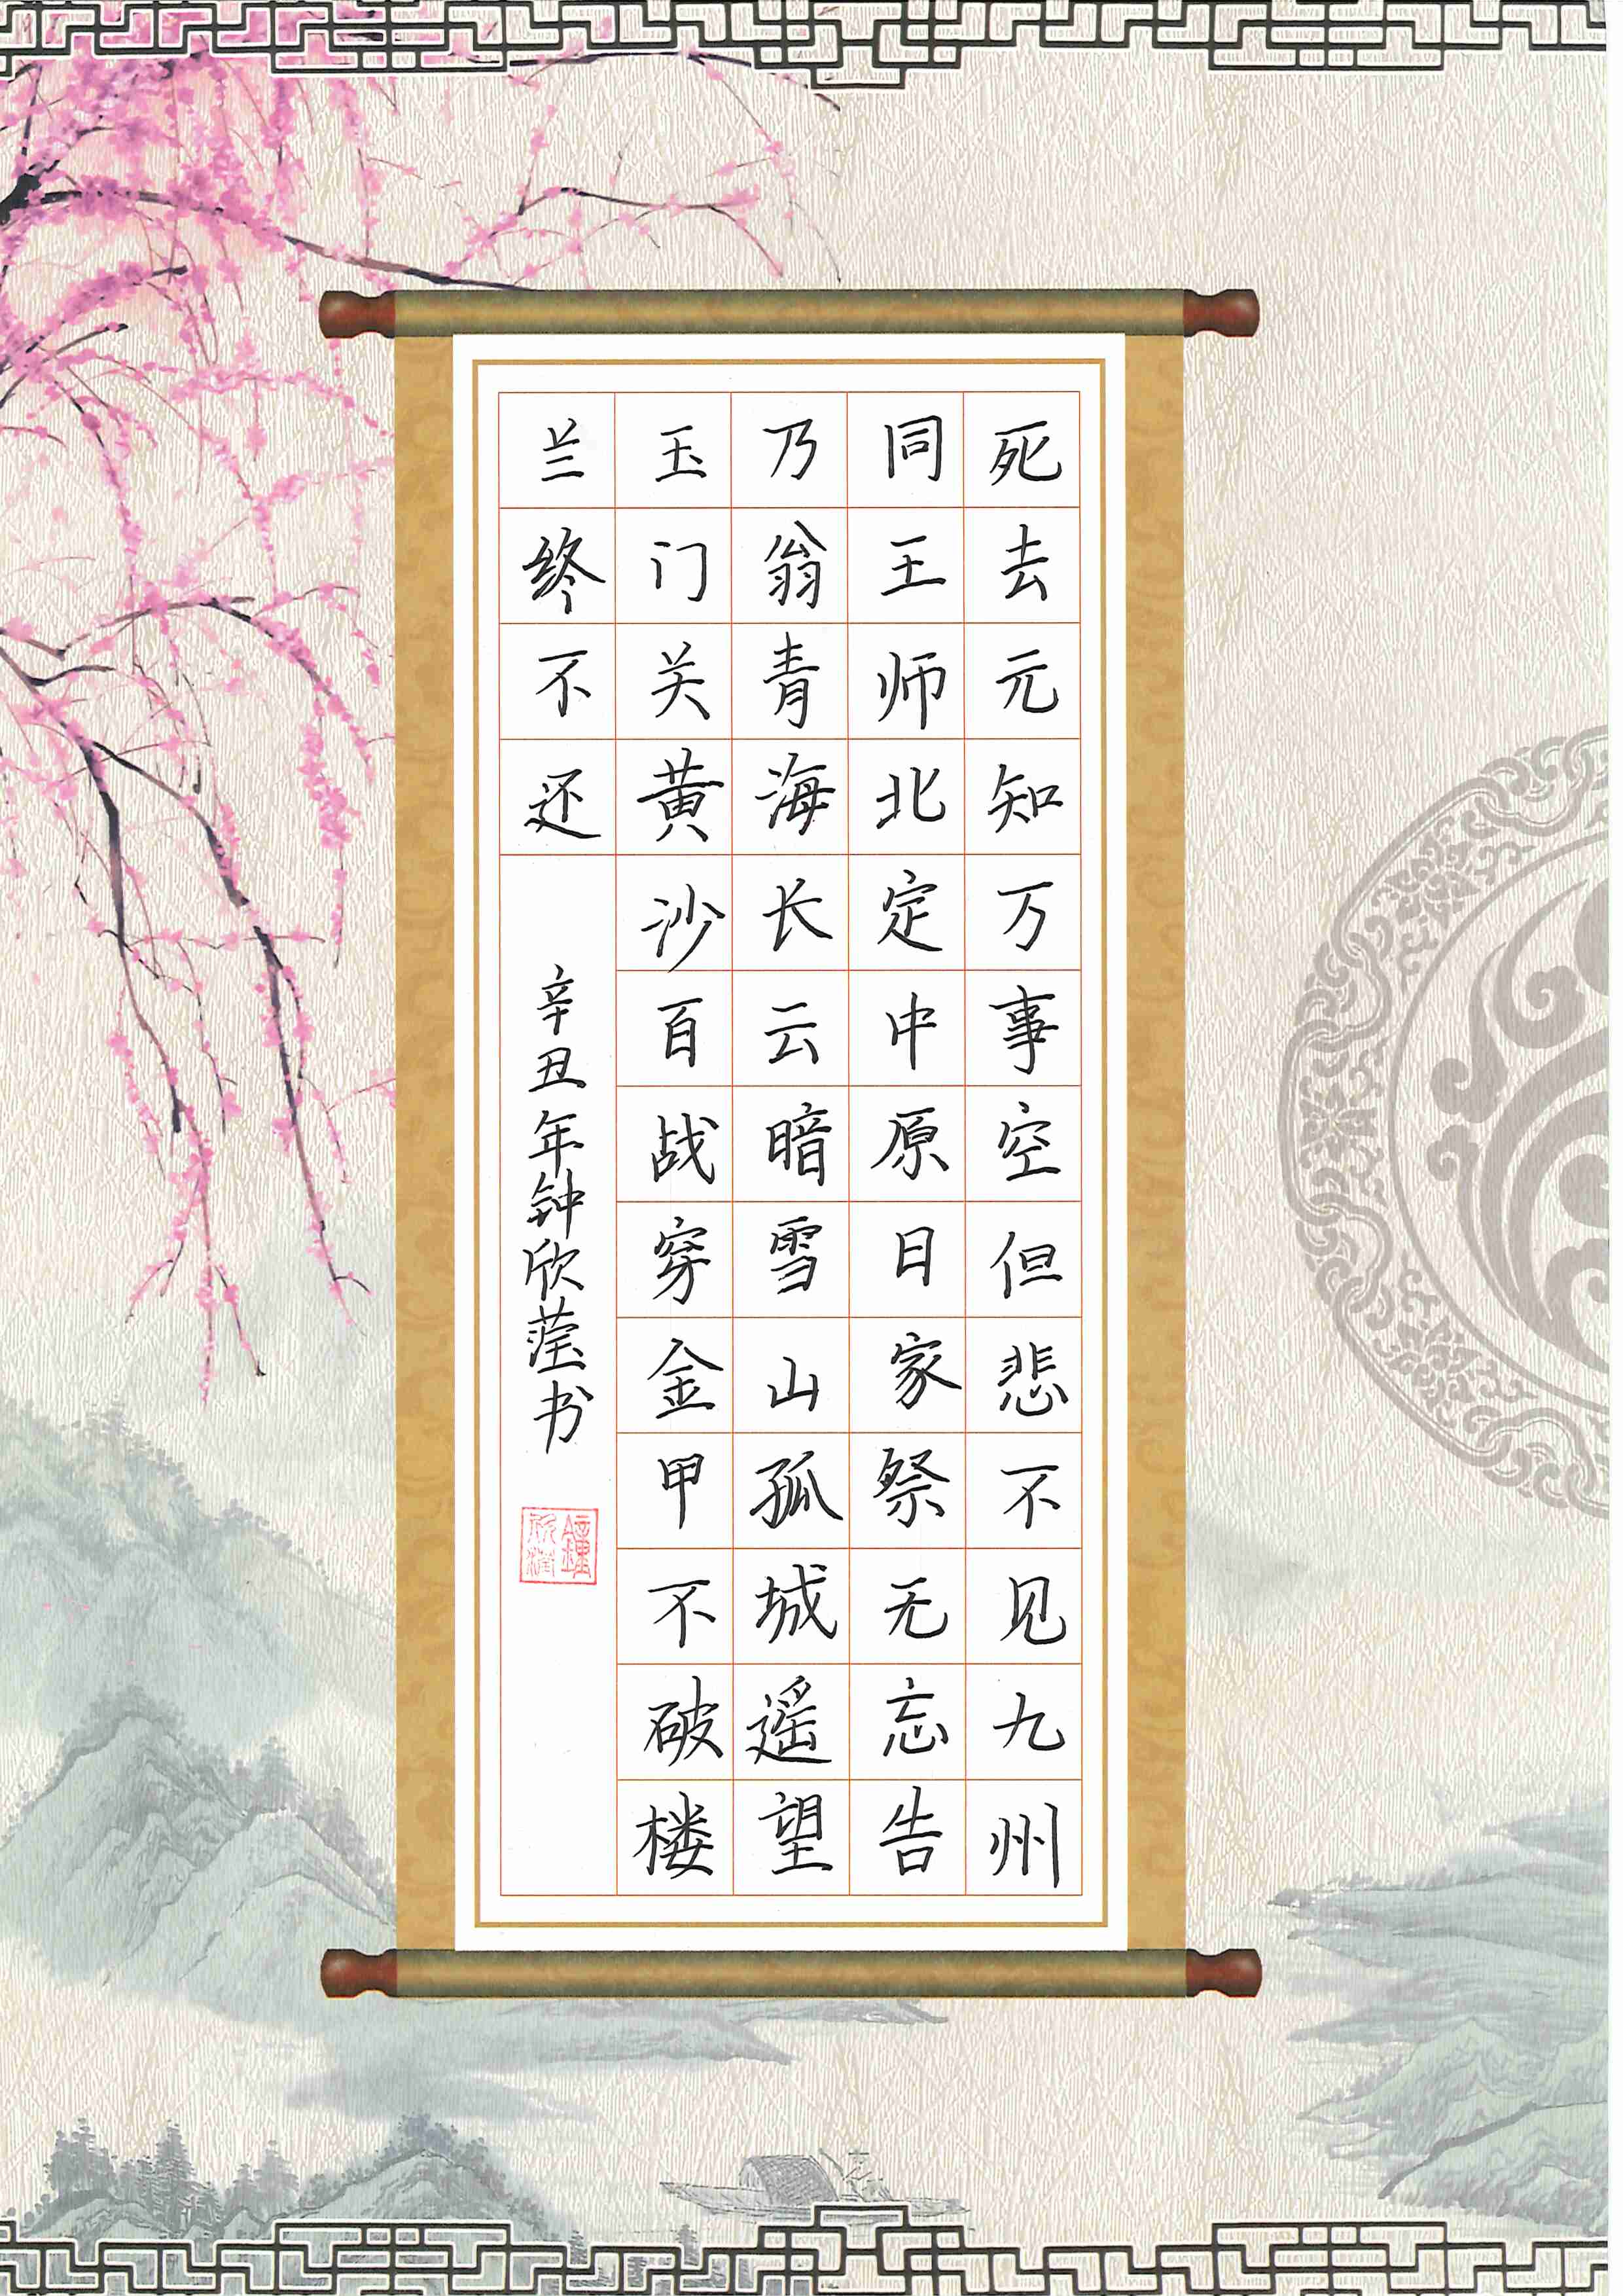 死去元知万事空但悲不见九州
同王师北定中原日家祭无忘告
乃翁青海长云暗雪山孤城遥望
玉门关黄沙百战穿金甲不破楼
兰终不还
辛丑年钟欣莹书